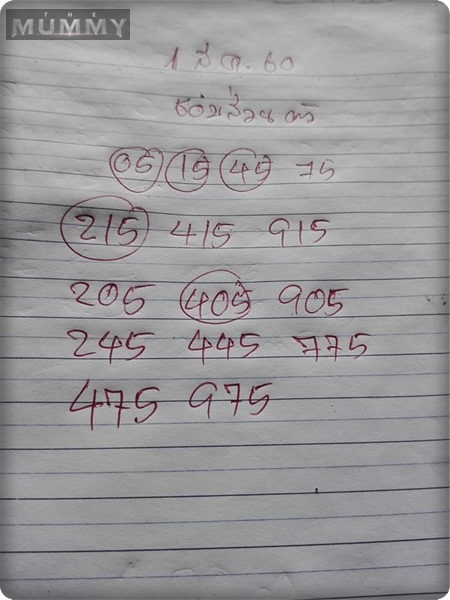 THE
MUMMY
1 มี.ค. 60
05 15 45 75
215 415 915
205 405 905
245 445 775
475 975